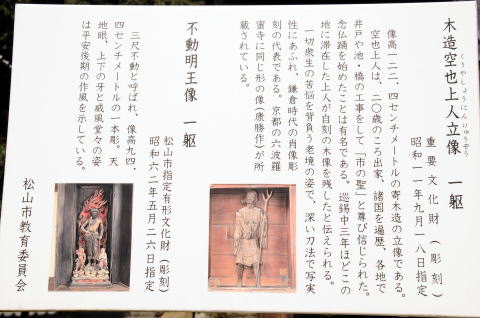 くうやしょうにんりゅうぞう
木造空也上人立像　一躯
重要文化財（彫刻）
昭和一一年九月一八日指定
像高一二二、四センチメートルの寄木造の立像である。
空也上人は、二〇歳のころ出家、諸国を遍歴、各地で
井戸や池・橋の工事をして「市の聖」と尊び信じられた。
念仏踊を始めたことは有名である。巡錫中三年ほどこの
地に滞在した上人が自刻の木像を残したと伝えられる。
一切衆生の苦悩を背負う老境の姿で、深い刀法で写実
性にあふれ、鎌倉時代の肖像彫
刻の代表である。京都の六波羅
蜜寺に同じ形の像(康勝作)が所
蔵されている。
不動明王像　一躯
松山市指定有形文化財（彫刻）
昭和六二年五月二六日指定
三尺不動と呼ばれ、像高九四、
四センチメートルの一本彫。天
地眼、上下の牙と威風堂々の姿
は平安後期の作風を示している。
松山市教育委員会